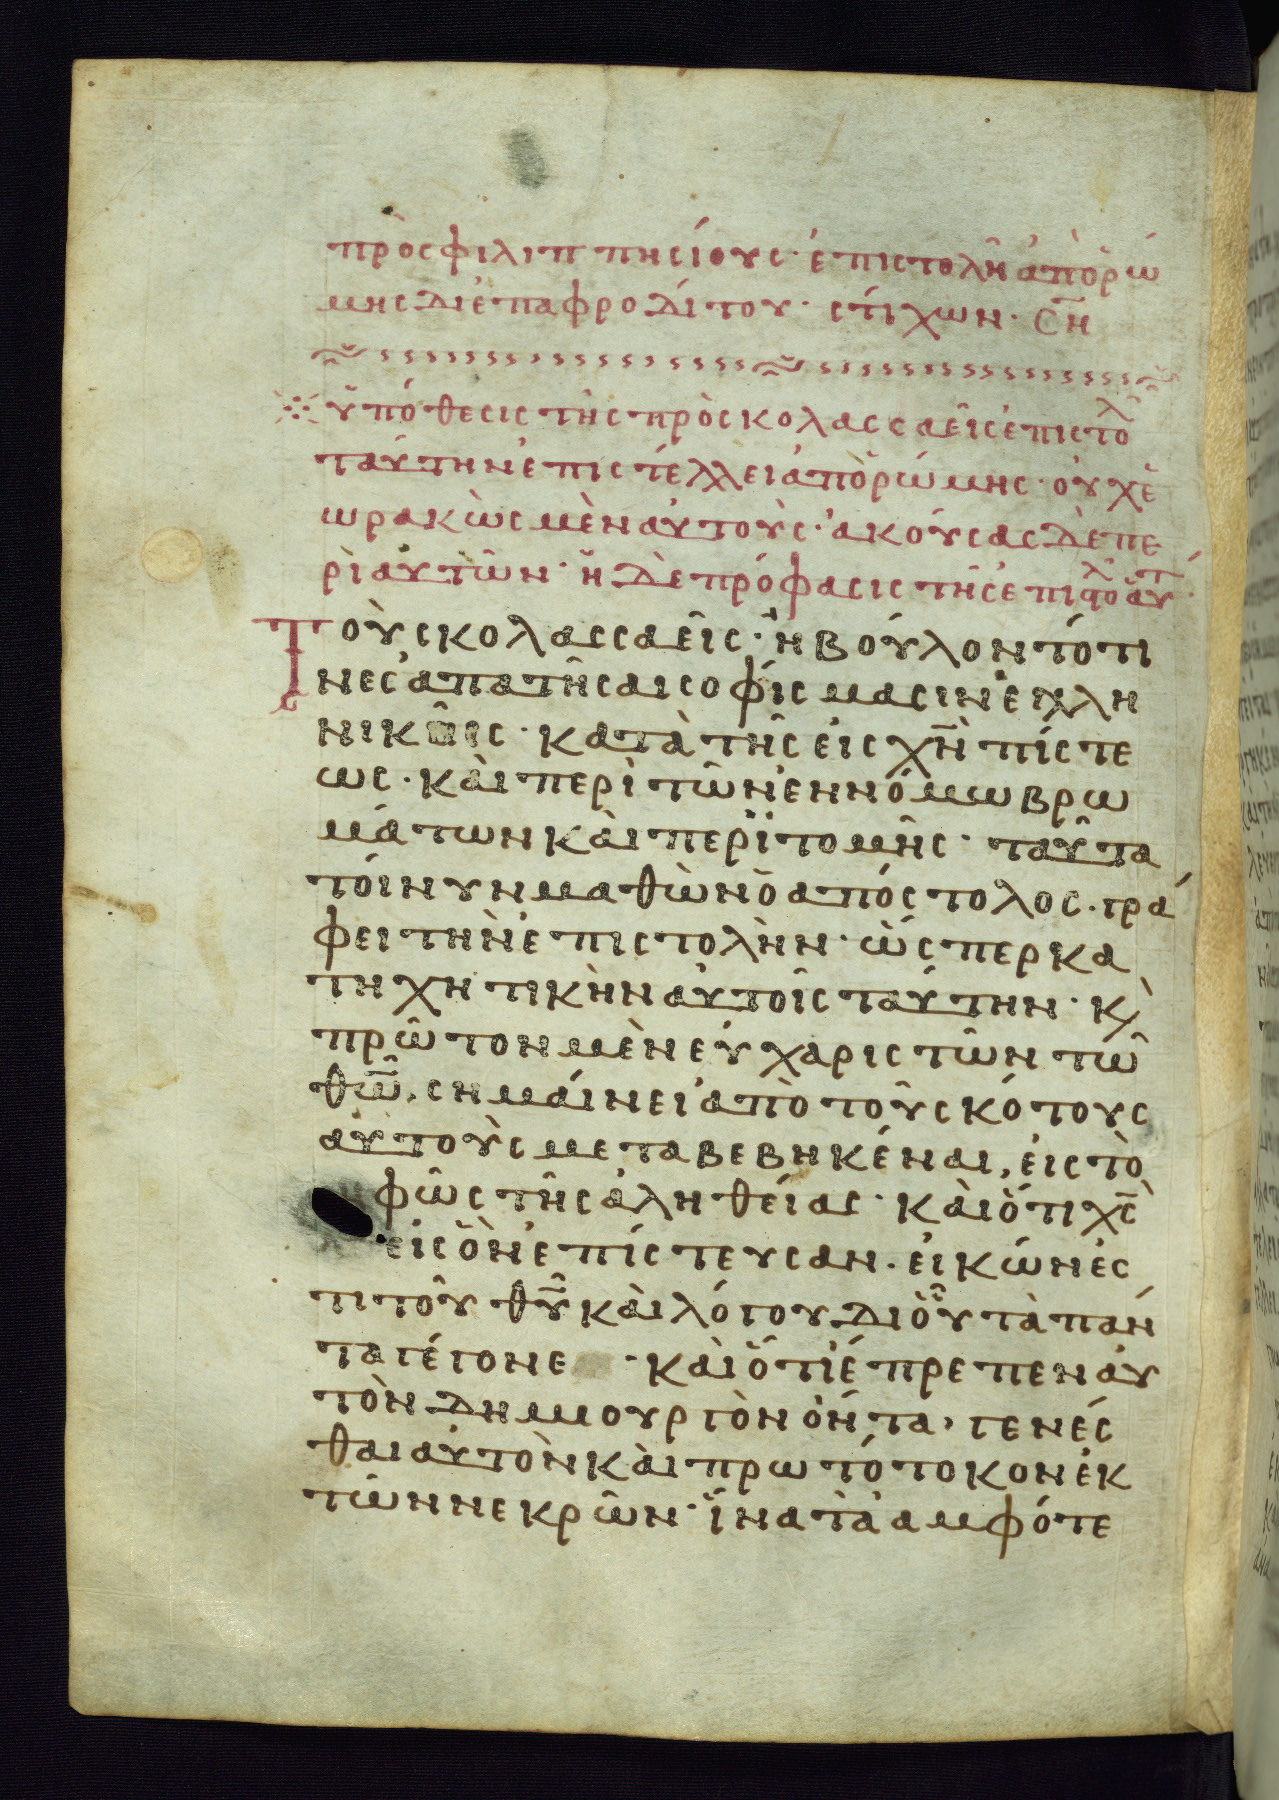 πρὸς φιλιππησίους· ἐπιστολὴ ἀπὸ ῥώ
μης δι ἐπαφροδίτου· στίχων· ση
ὑπόθεσις τῆς πρὸς κολασσαεῖς ἐπιστολ
ταύτην ἐπιστέλλει ἀπὸ ῥώμης· οὐχ ἑ
ωρακὼς μὲν αὐτοὺς· ἀκούσας δὲ πε
ρὶ αὐτῶν· ἡ δὲ πρόφασις τῆς ἐπιστολ αὕτ
Τοὺς κολασσαεῖς· ἠβούλοντό τι
νες ἀπατῆσαι σοφίσμασιν ἑλλη
νικοῖς· κατὰ τῆς εἰς χν πίστε
ως· καὶ περὶ τῶν ἐν νόμω βρω
μάτων καὶ περϊτομῆς· ταῦτα
τοίνυν μαθὼν ὁ ἀπόστολος· γρά
φει τὴν ἐπιστολὴν· ὥσπερ κα
τηχητικὴν αὐτοῖς ταύτην· κ̀
πρῶτον μὲν εὐχαριστῶν τῶ
θω, σημαίνει ἀπὸ τοῦ σκότους
αὐτοὺς μεταβεβηκέναι, εἰς τὸ
φῶς τῆς ἀληθείας· καὶ ὅτι χς
εἰς ὃν ἐπίστευσαν· εἰκών ἐς
τι τοῦ θυ καὶ λόγου δι οὗ τὰ πάν
τα γέγονε· καὶ ὅτι ἔπρεπεν αὐ
τὸν δημουργὸν ὄντα, γενές
θαι αὐτὸν καὶ πρωτότοκον ἐκ
τῶν νεκρῶν· ἵνα τὰ ἀμφότε